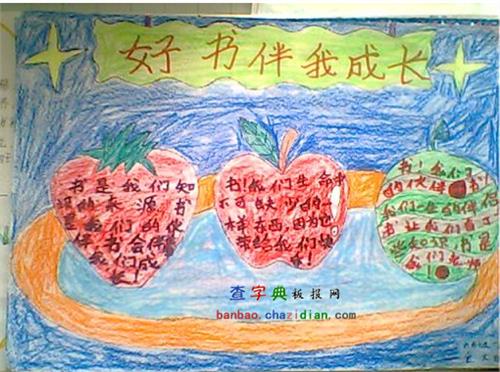 好书伴我成长
书是我们知
识的来源书
是我们的伙
伴书会伴
我们成
长!
书!我们生命中
不可缺少的一
样东西,因为它
带给我们快
乐!
书!我们
的伙伴书
我们一生的
书让我们有了
知识,书是
我们老师
!
查字典板报网
banbao.chazidian.com